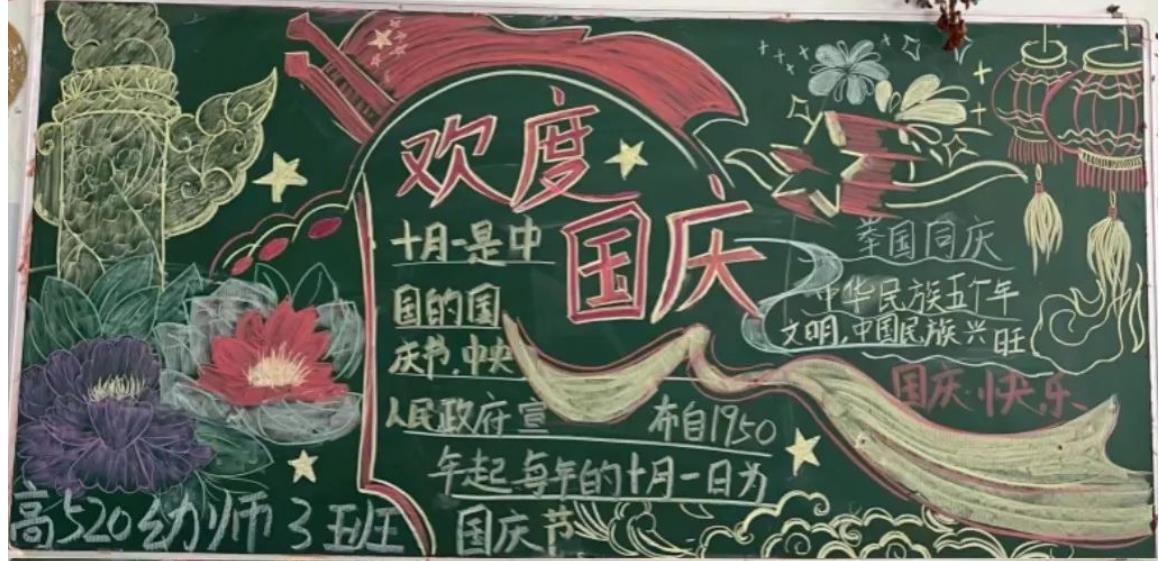 欢度
国庆
十月一是中
国的国
庆节,中央
人民政府宣布自1950
年起,每年的十月一日为
国庆节
举国同庆
中华民族五个年
文明,中国民族兴旺
国庆·快乐
高520幼师3班